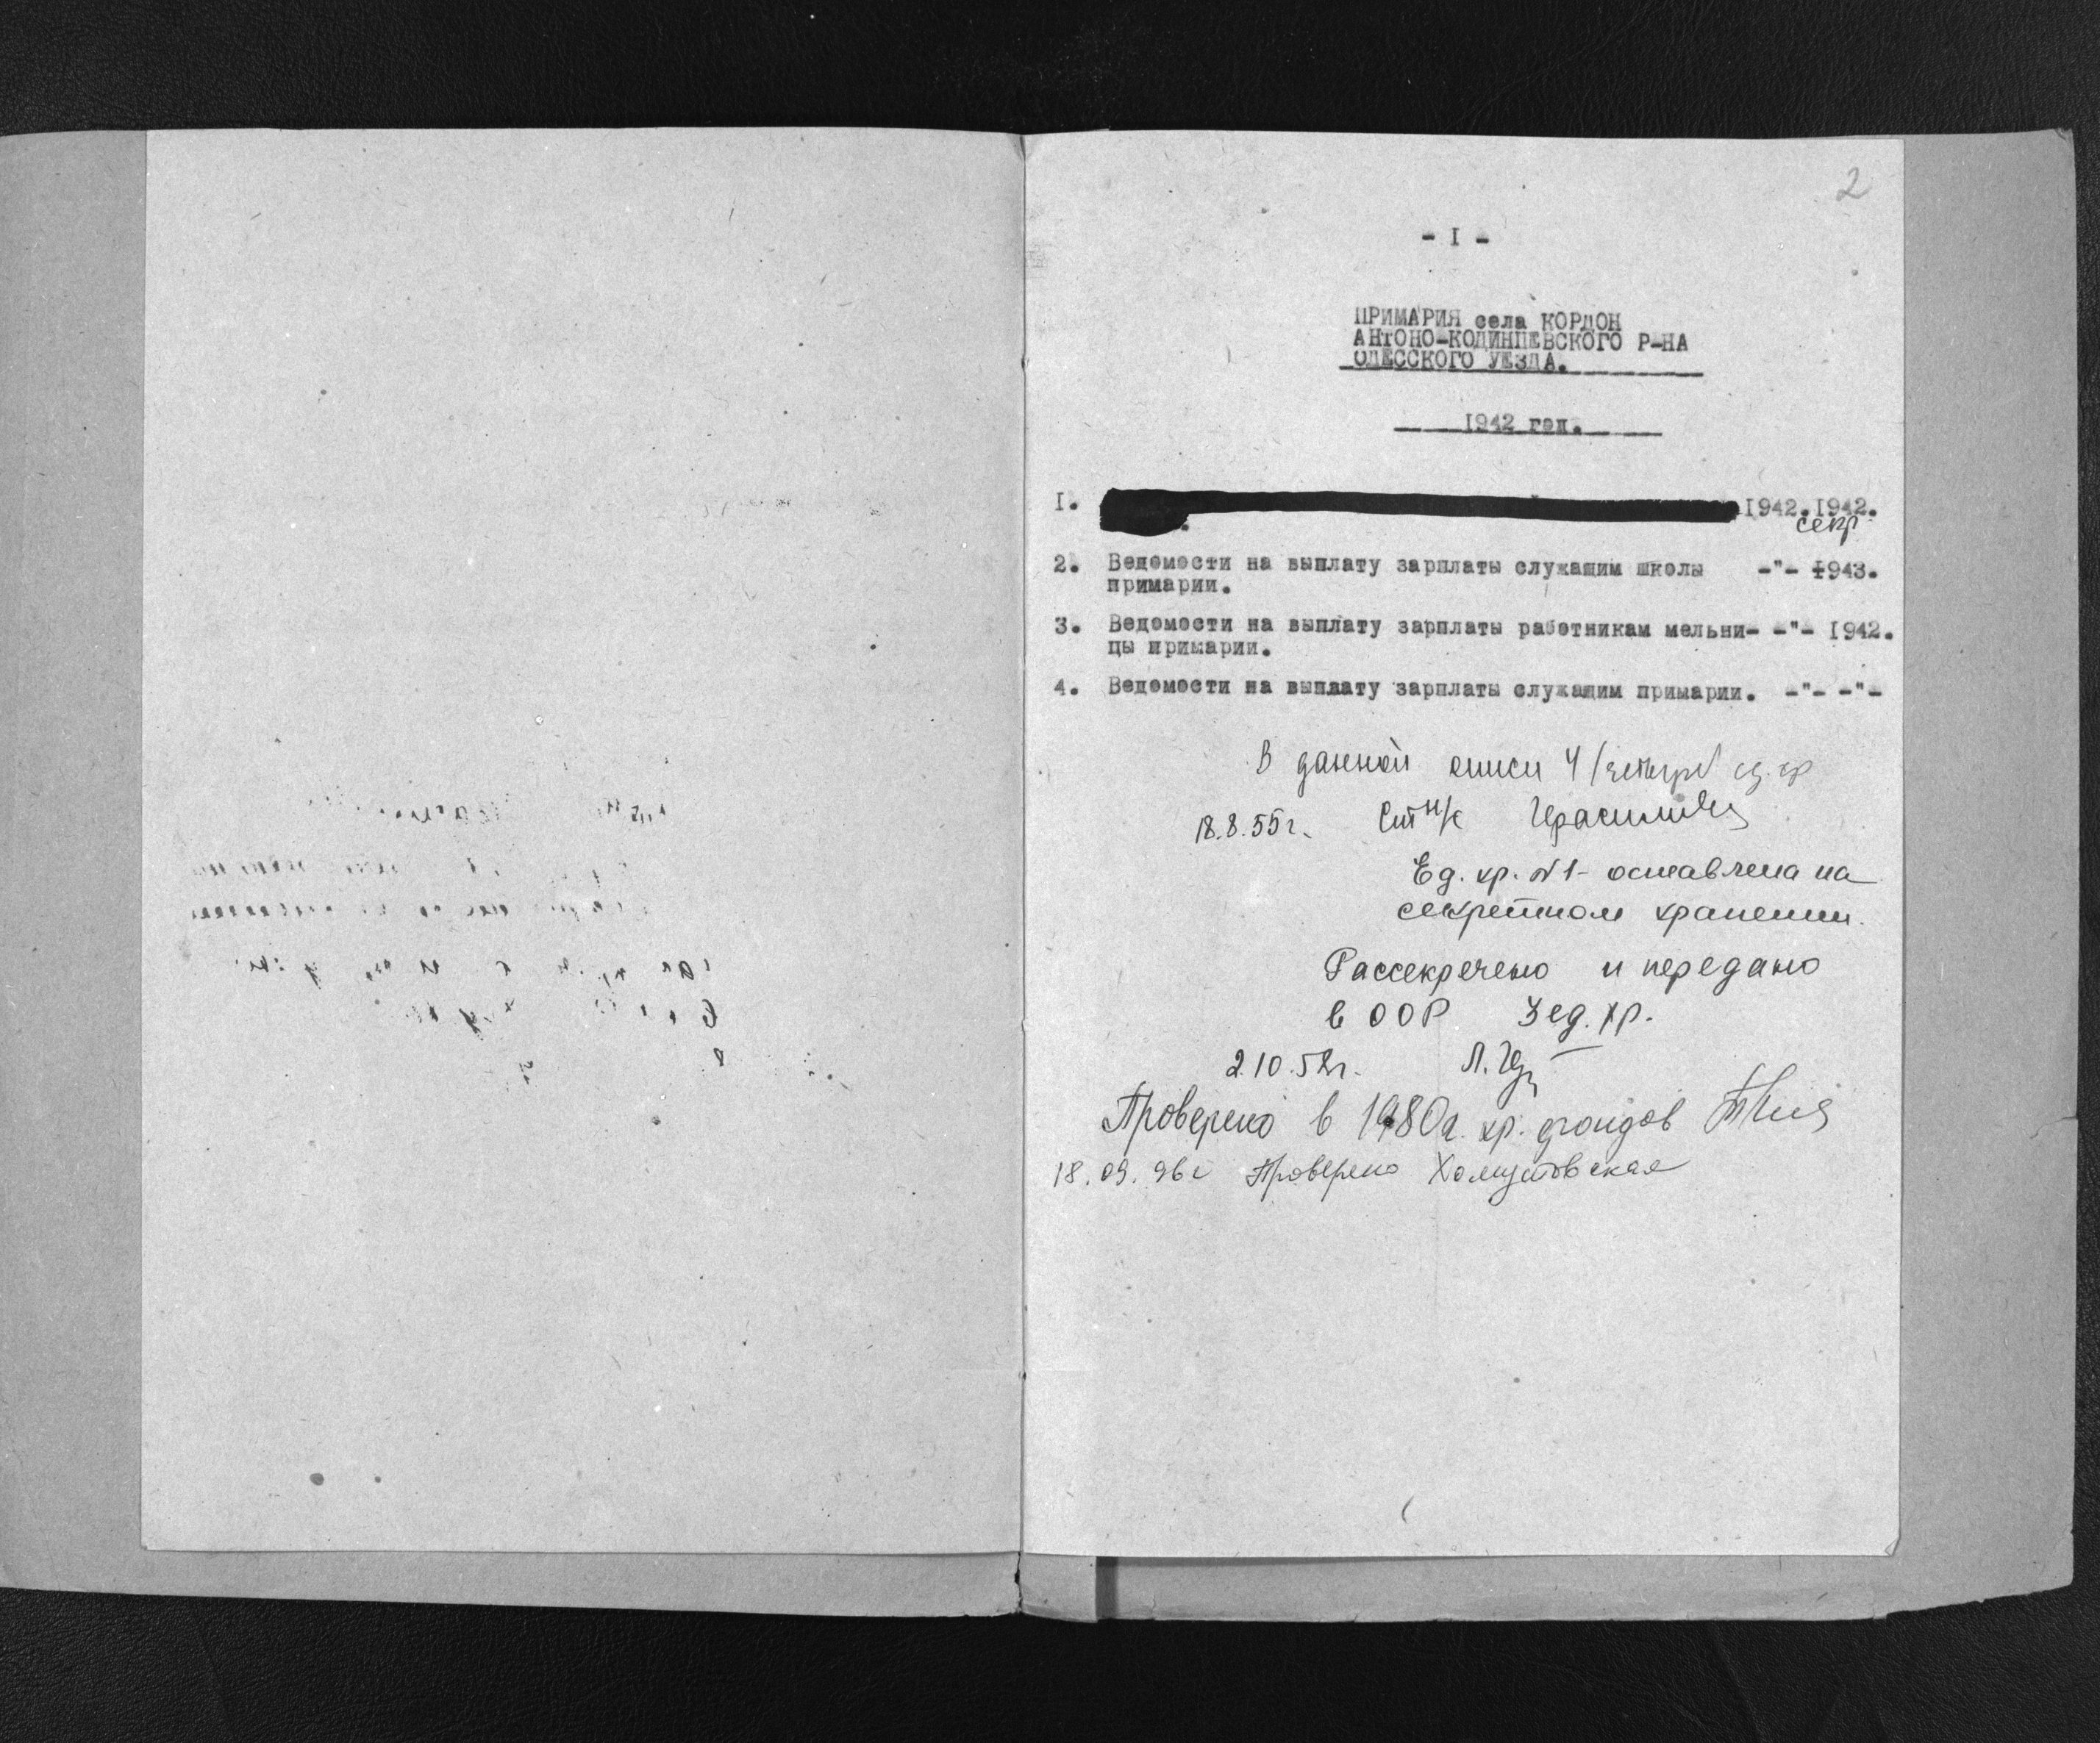 2
- I -
ПРИМАРИЯ села КОРДОН
АНТОНО-КОДИНЦЕВСКОГО Р-НА
ОДЕССКОГО УЕЗДА.
1942 год.
I. 1942. 1942.
секр.
2. Ведомости на выплату зарплаты служащим школы -"- 1943.
примарии.
3. Ведомости на выплату зарплаты работникам мельни- -"- 1942.
цы примарии.
4. Ведомости на выплату зарплаты служащим примарии. -"- -"-
В данной описи 4 /четыре/ ед. хр
18.8.55г. Ст н/с
Ед. хр. №1 - оставлена на
секретном хранении.
Рассекречено и передано
в ООР 3 ед. хр.
2.10.58г.
Проверено в 1980г. хр. фондов
18.09.96г Проверено Хомутовская